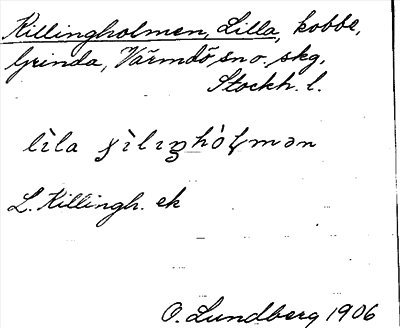 Killingholmen, Lilla, kobbe,
Grinda, Värmdö sn o. skg,
Stockh. l.
lìla ʂìlıŋhòɭmən
L. Killingh. ek
O. Lundberg 1906